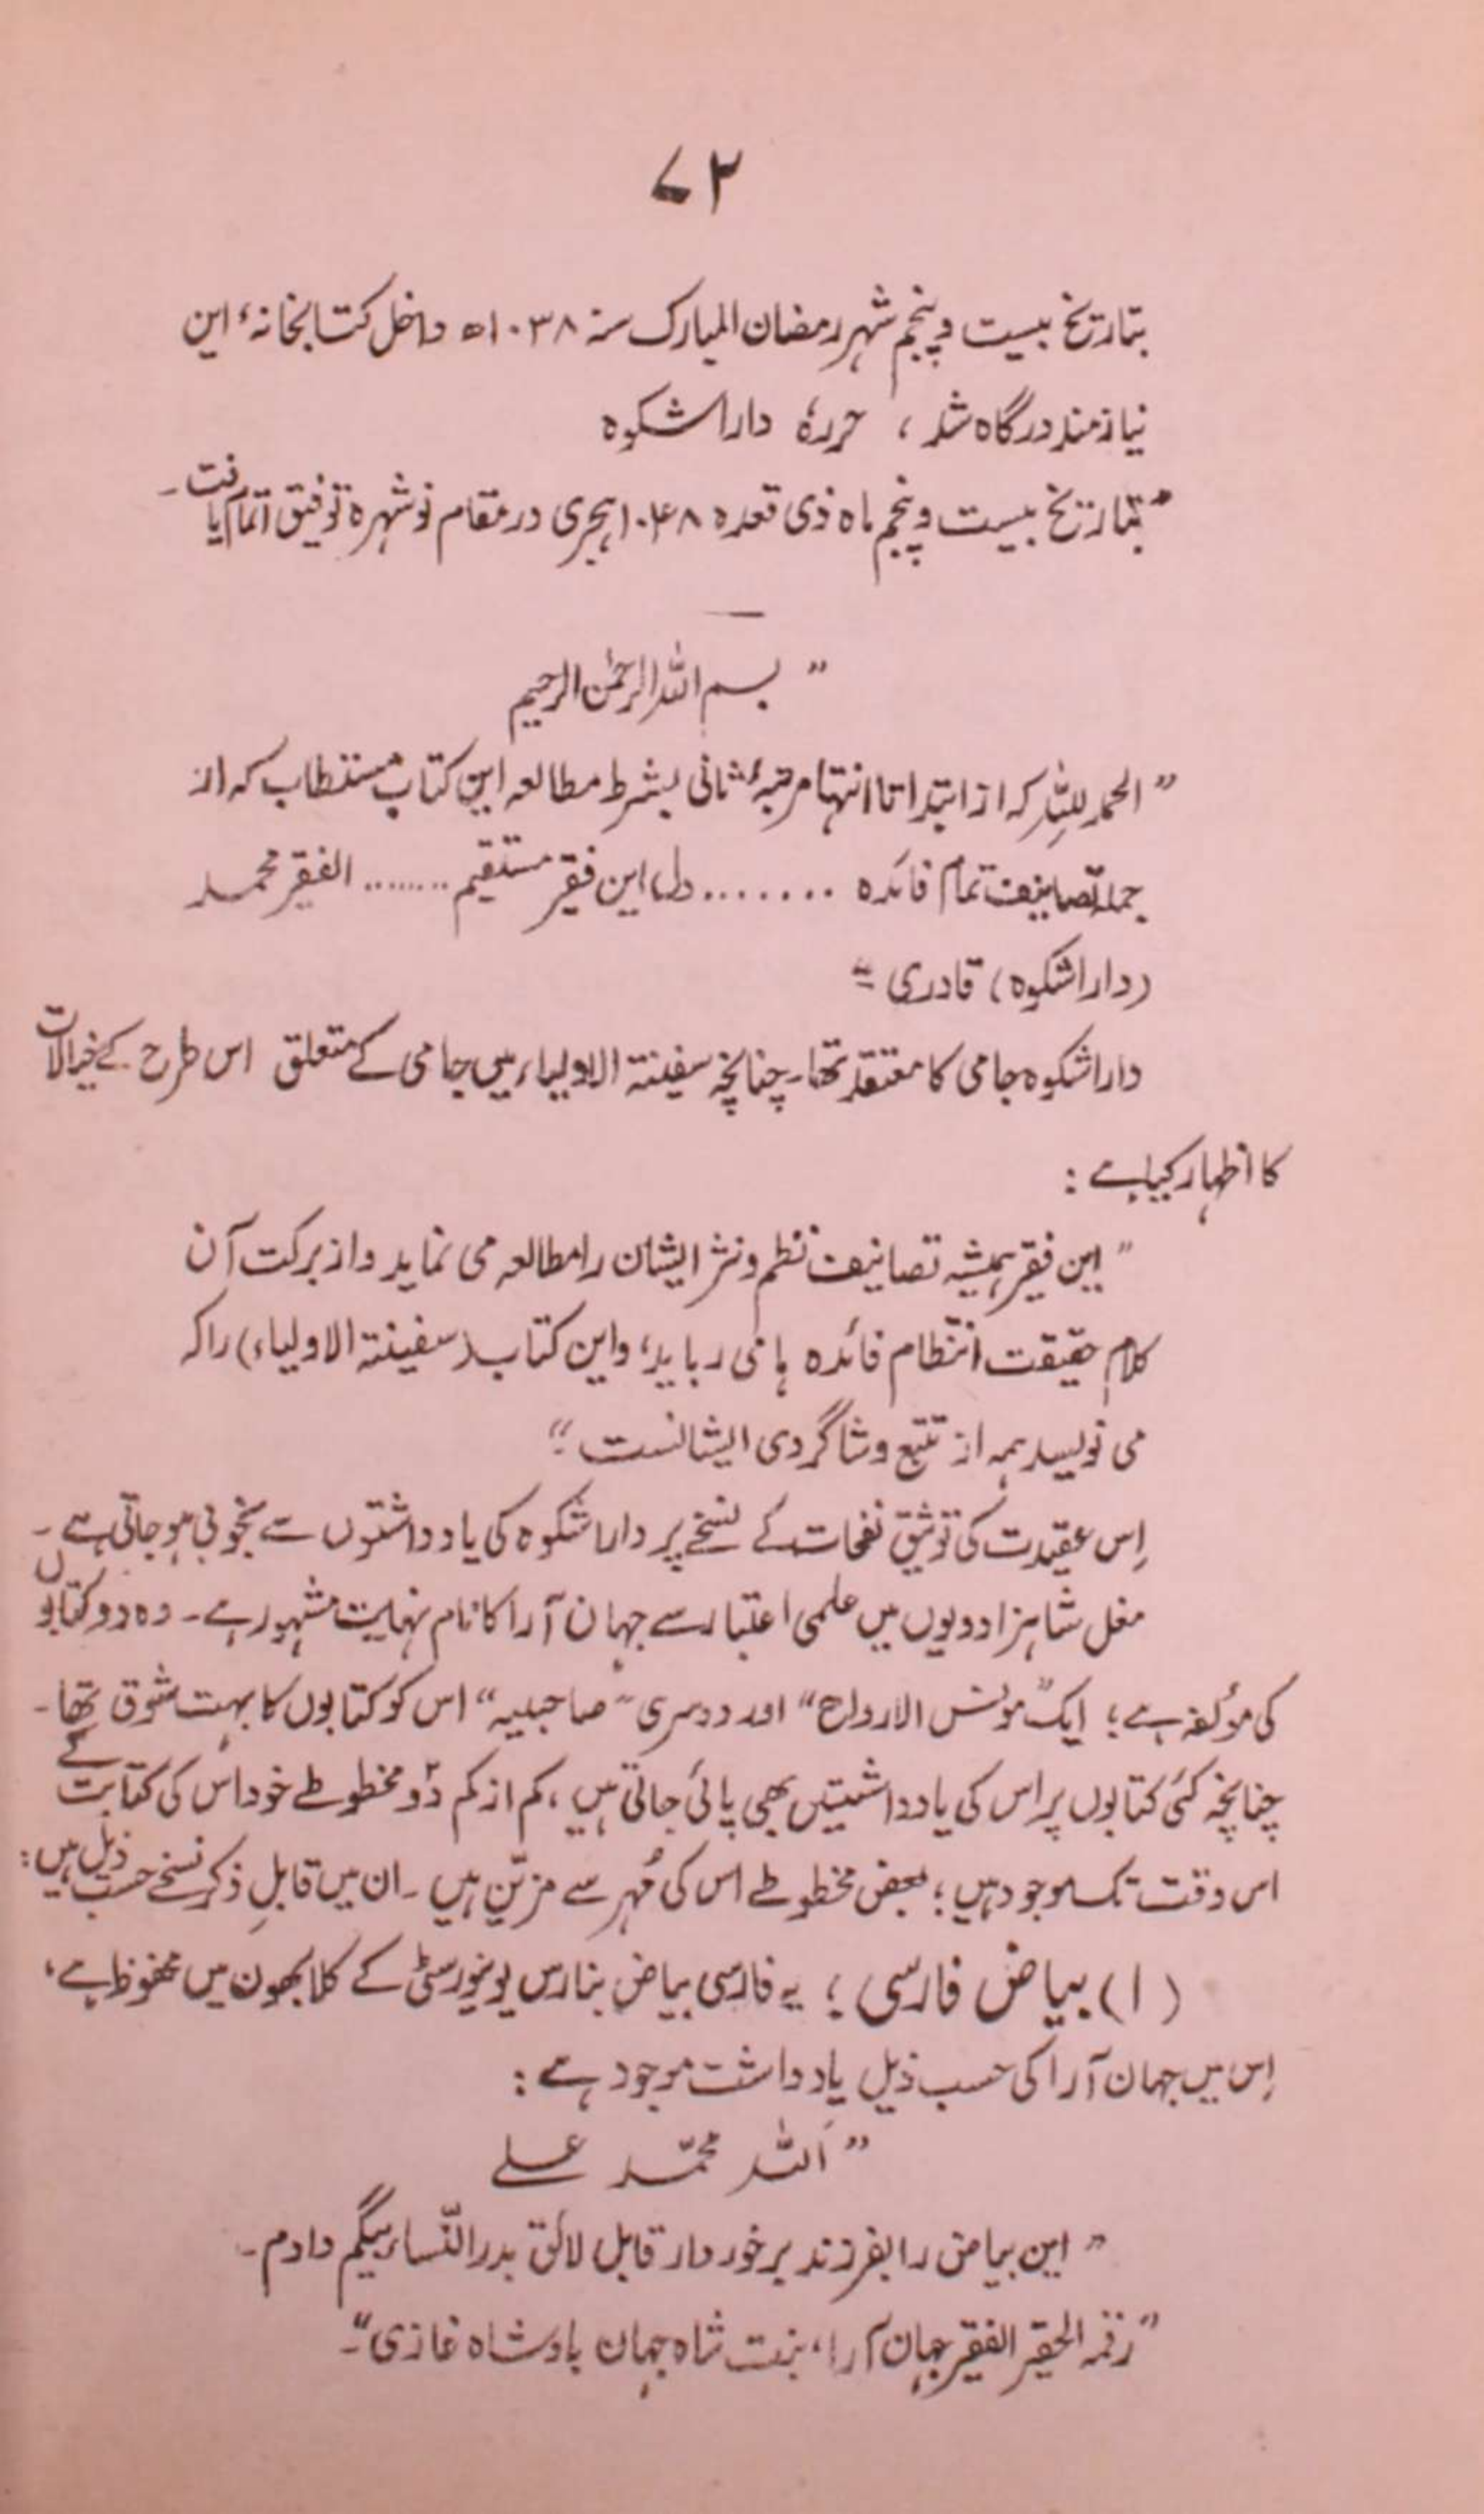 ۷۲
بتاریخ بیست و پنجم شہر رمضان المبارک سنہ ۱۰۳۸ھ داخل کتابخانۂ این
نیازمند درگاہ شد ، حررہٗ داراشکوہ
"بتاریخ بیست و پنجم ماہ ذی قعدہ ۱۰۴۸ ہجری در مقام نوشہرہ توفیق اتمام یافت۔
" بسم اللہ الرحمٰن الرحیم
" الحمد للہِ کہ از ابتدا تا انتہا مرتبۂ ثانی بشرط مطالعہ این کتاب مستطاب کہ از
جملہ تصانیف تمام فائدہ ....... دل این فقیر مستقیم ....... الفقیر محمد
(داراشکوہ) قادری "
داراشکوہ جامی کا معتقد تھا۔ چنانچہ سفینتہ الاولیاء میں جامی کے متعلق اس طرح کے خیالات
کا اظہار کیا ہے :
" این فقیر ہمیشہ تصانیف نظم و نثر ایشان را مطالعہ می نماید و از برکت آن
کلام حقیقت انتظام فائدہ ہا می رباید، و این کتاب (سفینتہ الاولیاء) را کہ
می نویسد ہمہ از تتبع و شاگردی ایشانست "
اِس عقیدت کی توثیق نفحات کے نسخے پر داراشکوہ کی یادداشتوں سے بخوبی ہو جاتی ہے ۔
مغل شاہزادویوں میں علمی اعتبار سے جہان آرا کا نام نہایت مشہور ہے ۔ وہ دو کتابوں
کی مؤلفہ ہے ؛ ایک "مونس الارواح" اور دوسری "صاحبیہ" اس کو کتابوں کا بہت شوق تھا ۔
چنانچہ کئی کتابوں پر اس کی یادداشتیں بھی پائی جاتی ہیں ، کم از کم دو مخطوطے خود اس کی کتابت کے
اس وقت تک موجود ہیں ؛ بعض مخطوطے اس کی مُہر سے مزیّن ہیں ۔ ان میں قابلِ ذکر نسخے حسب ذیل ہیں :
(۱) بیاض فارسی ؛ یہ فارسی بیاض بنارس یونیورسٹی کے کلابھون میں محفوظ ہے ،
اِس میں جہان آرا کی حسب ذیل یادداشت موجود ہے :
" اَللہ محمّد علی
" این بیاض را بفرزند برخوردار قابل لائق بدرالنّساء بیگم دادم ۔
"رقمہ الحقیر الفقیر جہان آرا، بنت شاہ جہان بادشاہ غازی"۔